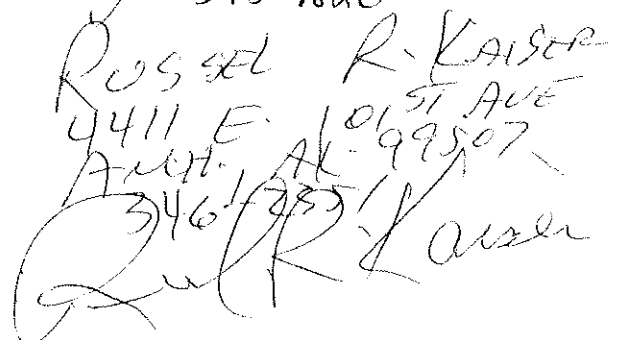 RUSSEL R. KAISER
4411 E. 101 ST AVE
ANCH. AK. 99507
346-2551
R. Kaiser